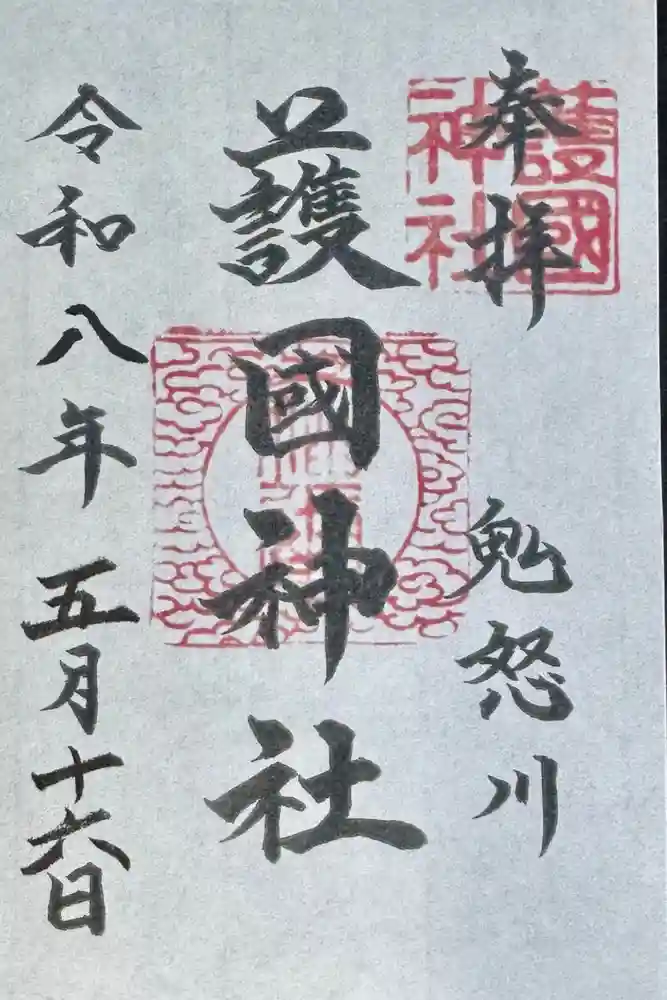 奉拝
鬼怒川
護國神社
令和八年五月十六日
護國
神社